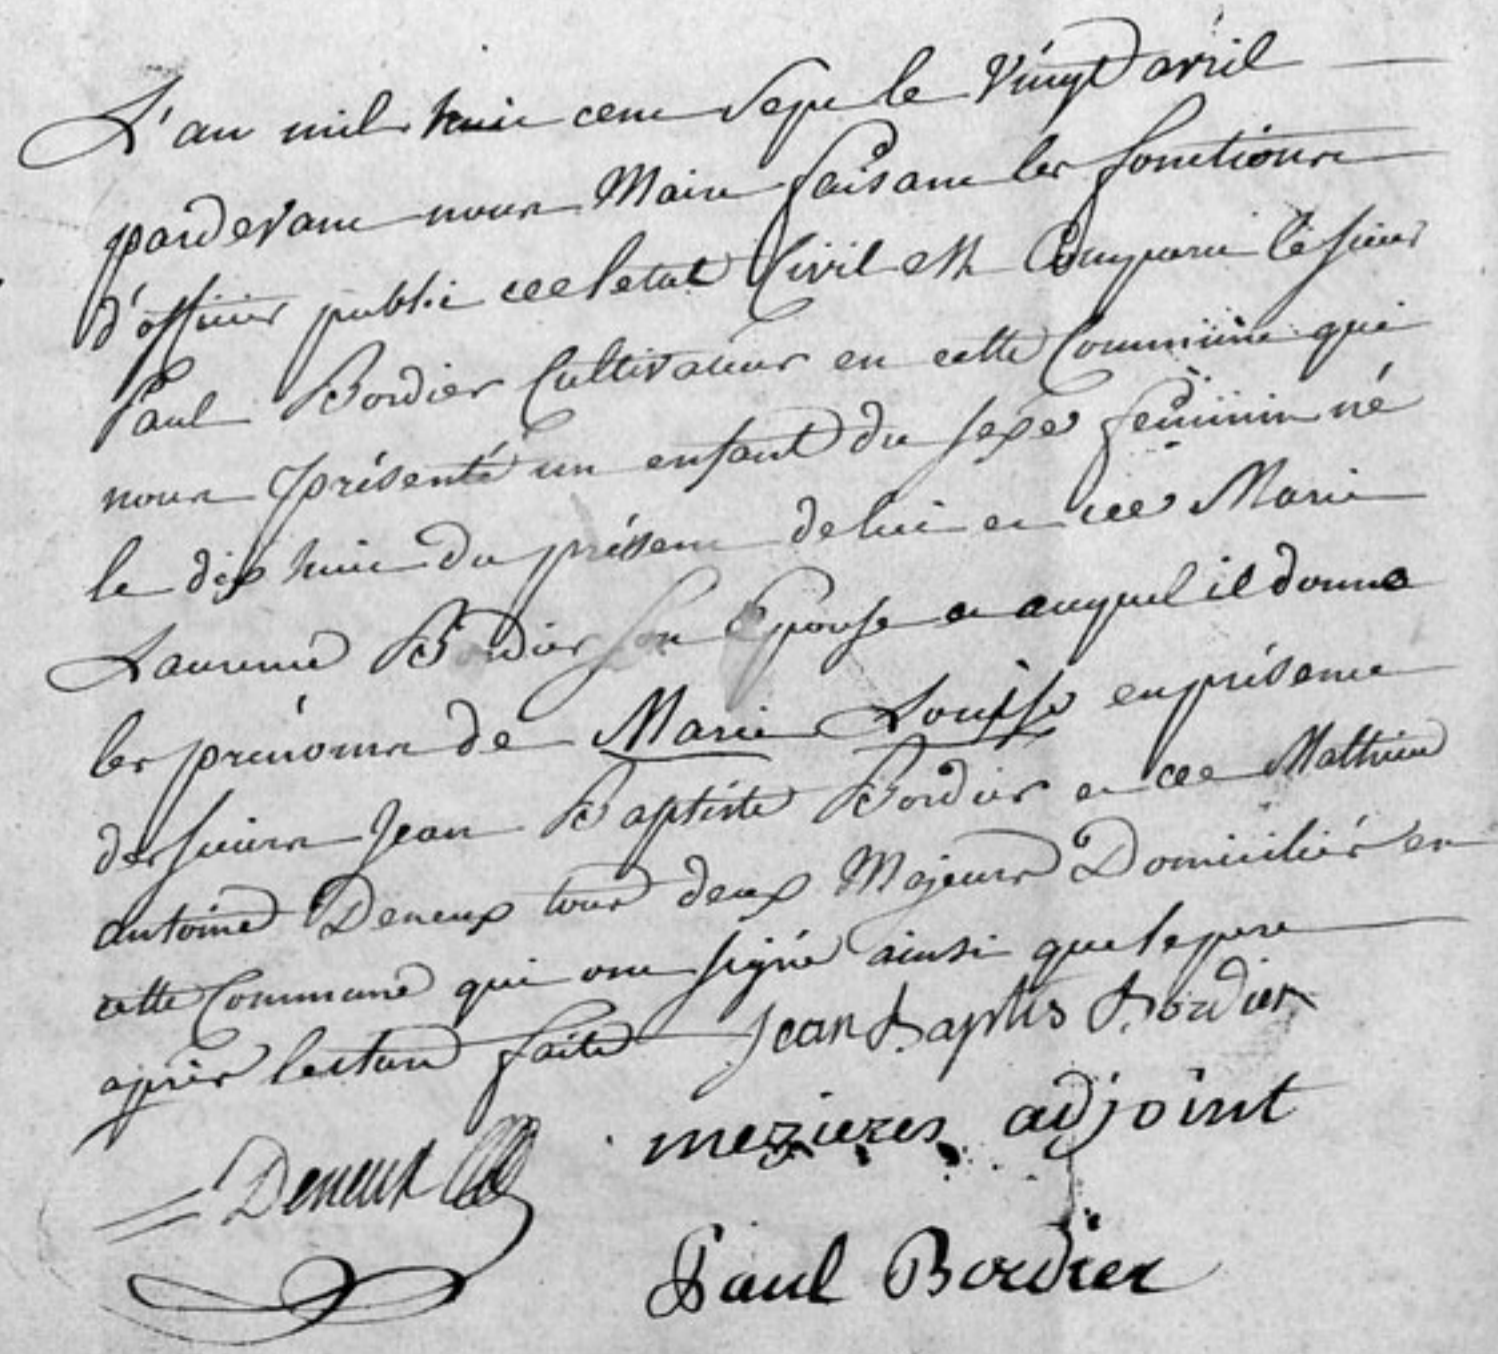 L'an mil huit cent sept le Vingt avril
pardevant nous Maire faisant les fonctions
d'officier public de l'etat Civil est Comparu le sieur
Paul Bordier Cultivateur en cette Commune qui
nous a présenté un enfant du sexe feminin né
le dix huit du présent de lui et de Marie
Laurence Bordier son Epouse et auquel il donne
les prénoms de Marie Louise en présence
des sieurs Jean Baptiste Bordier et de Mathieu
antoine Deneux tous deux Majeurs Domiciliés en
cette Commune qui ont signé ainsi que le pere
après lecture faite Jean Baptis Bordier
mezieres adjoint
Deneux
Paul Bordier